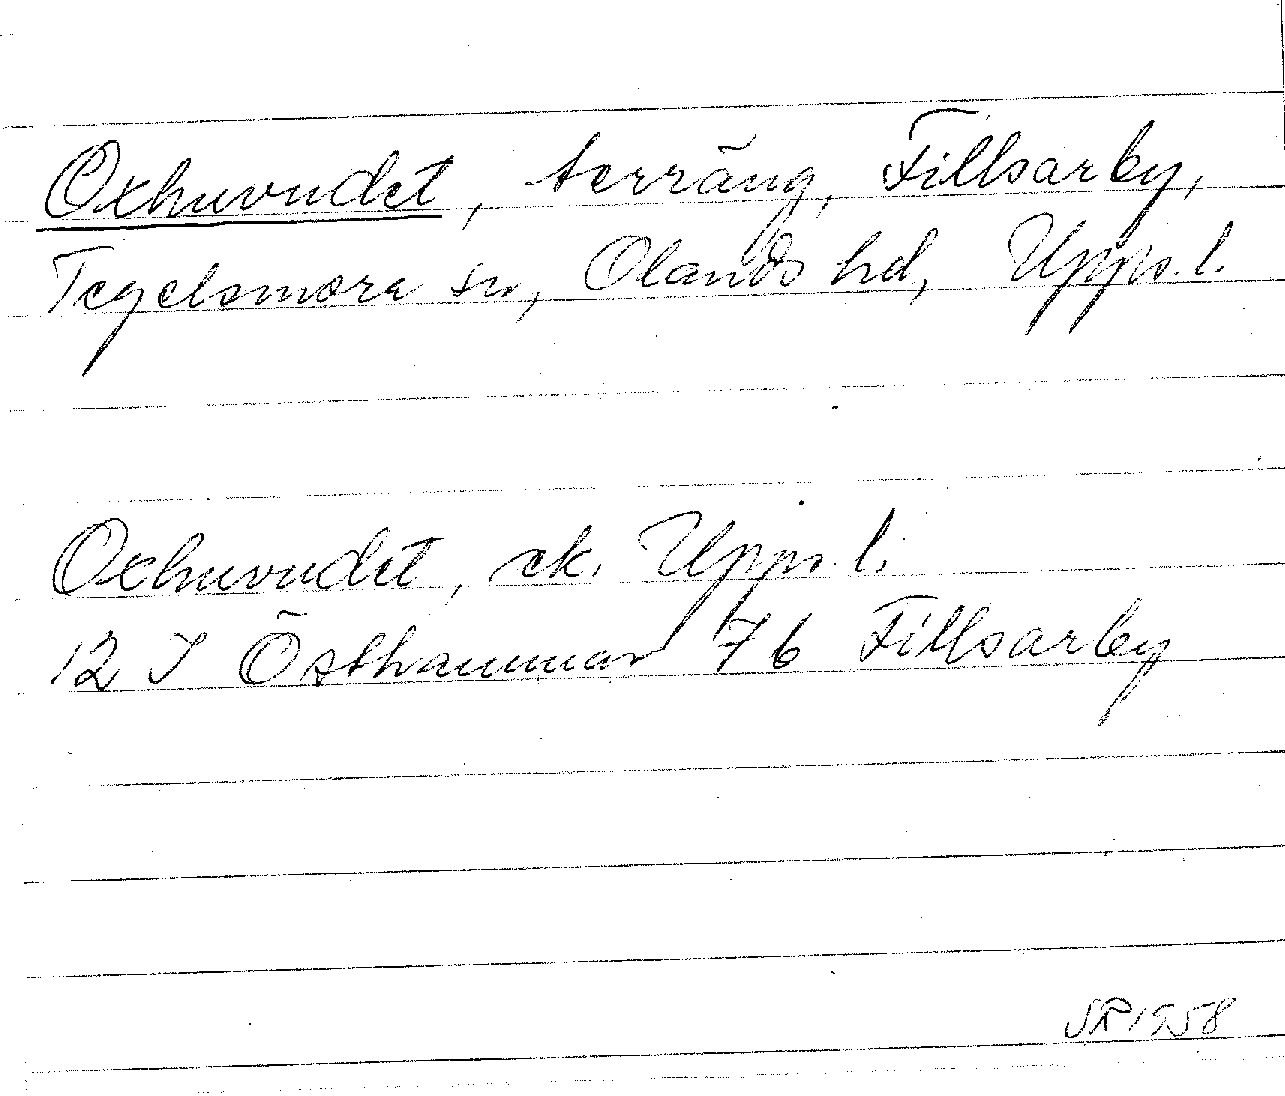 Oxhuvudet, terräng, Fillsarby,
Tegelsmora sn, Olands hd, Upps. l.
Oxhuvudet, ek. Upps. l.
12 I Östhammar 7b Fillsarby
1958